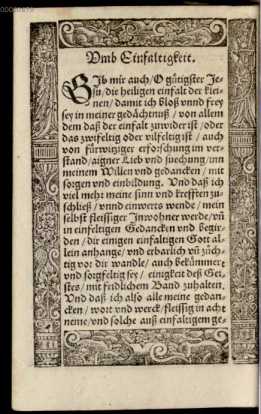 Vmb Einfaltigkeit.
GIb mir auch/O gütigster Je-
su/die heiligen einfalt der klei-
nen/damit ich bloß vnnd frey
sey in meiner gedächtnuß/von allem
dem daß der einfalt zuwider ist/oder
das zwifeltig oder vilfeltig ist/auch
von fürwitziger erforschung im ver-
stand/aigner Lieb vnd suechung/inn
meinem Willen vnd gedancken/mit
sorgen vnd einbildung. Vnd daß ich
viel mehr meine sinn vnd krefften zu-
schließ/vnnd einwerts wende/mein
selbst fleissiger Inwohner werde/vñ
in einfeltigen Gedancken vnd Begir-
den/dir einigen einfaltigen Gott al-
lein anhange/vnd erbarlich vñ züch-
tig vor dir wandle/auch bekümmert
vnd sorgfeltig sey/einigkeit deß Gei-
stes/mit fridlichem Band zuhalten.
Vnd daß ich also alle meine gedan-
cken/wort vnd werck/fleissig in acht
neme/vnd solche auß einfaltigem ge-